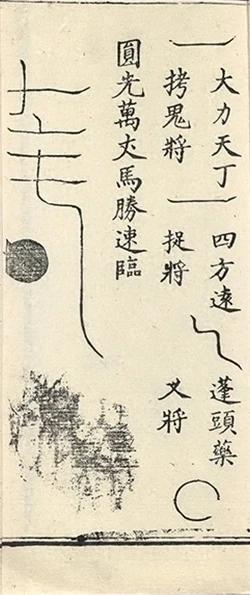 大力天丁
拷鬼將
四方遠
捉將
蓬頭藥
叉將
圓光萬丈馬勝速臨